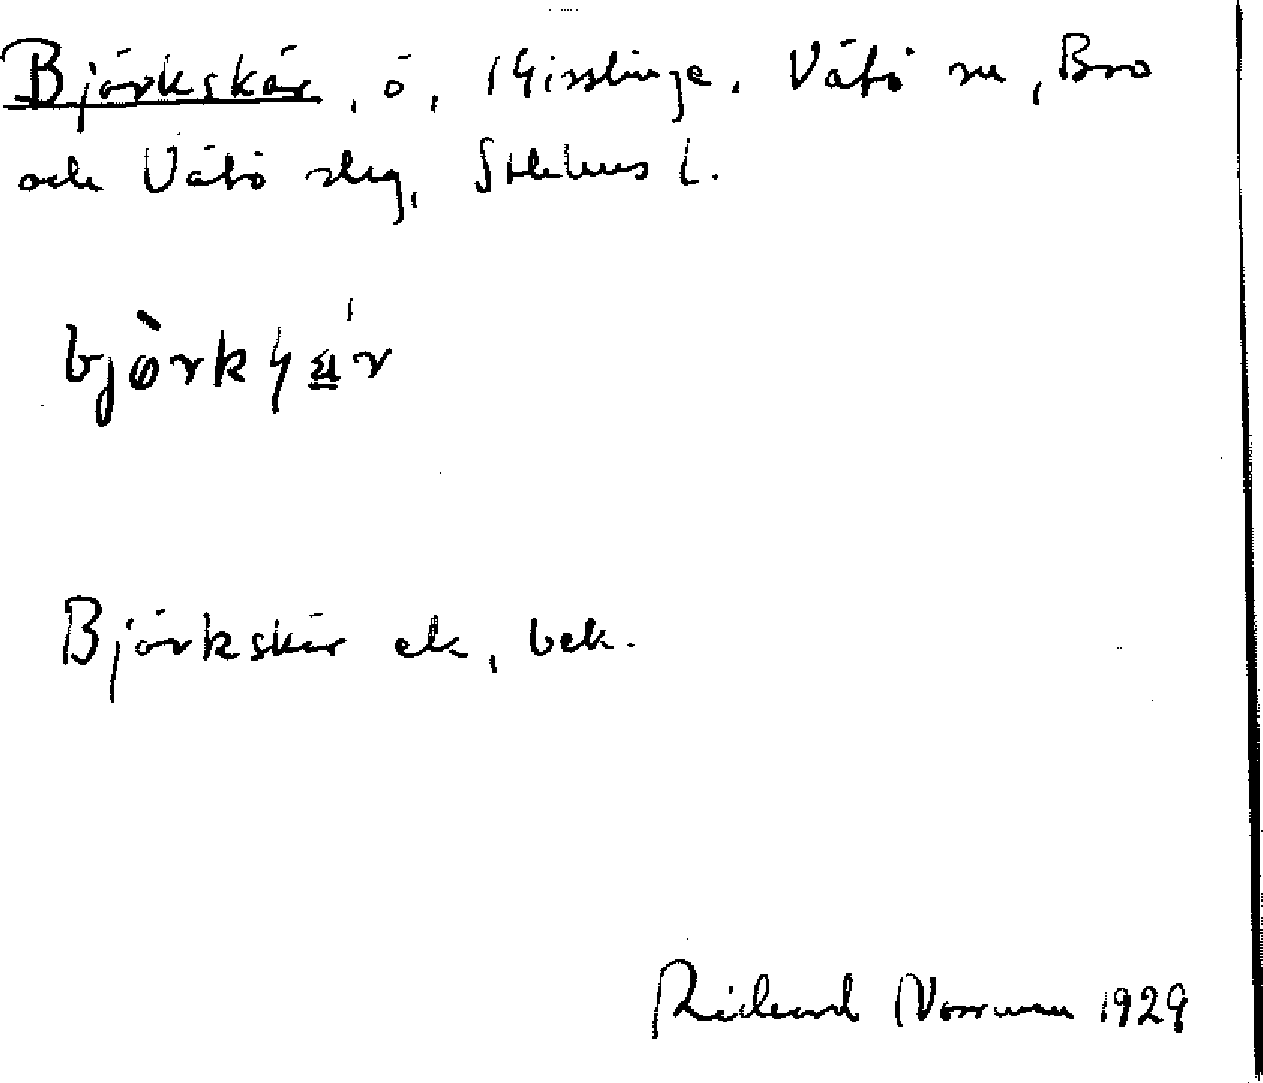 Björkskär, ö, Gisslinge, Vätö sn, Bro
och Vätö slg, Sthlms l.
Björkskär ek, bek.
Rickard Norrman 1929